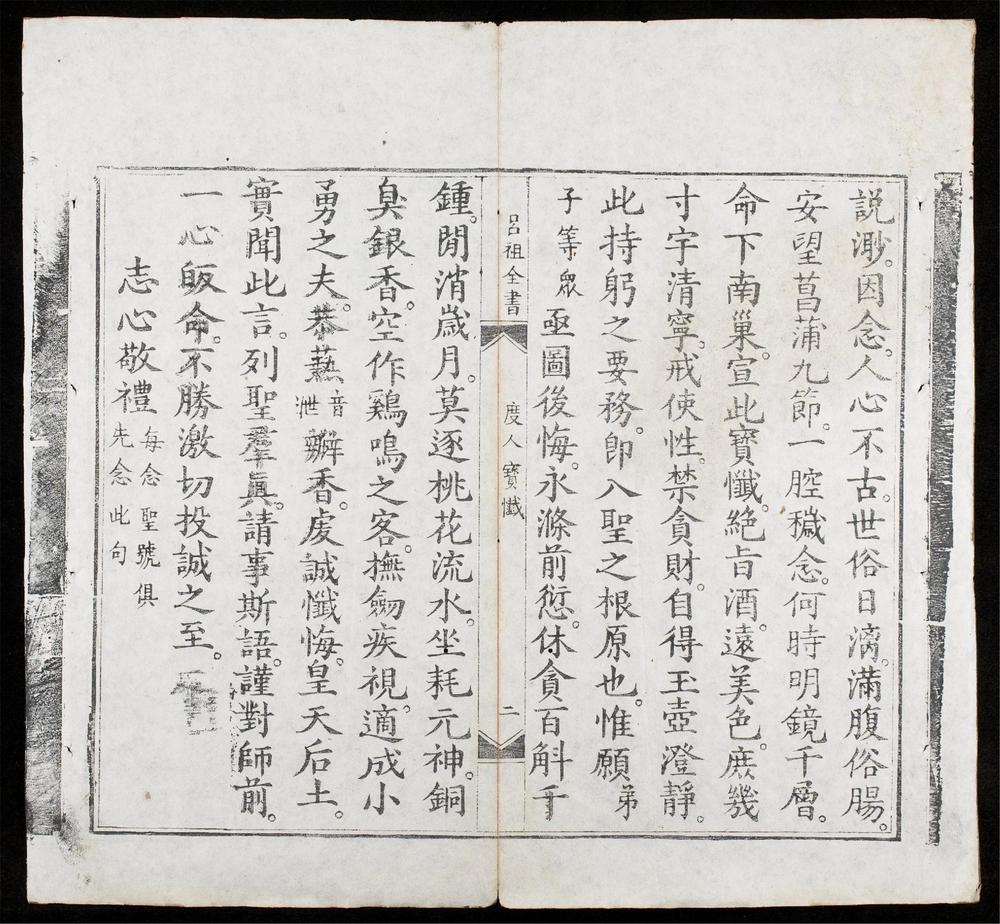 說渺。因念。人心不古。世俗日漓。滿腹俗腸。
安望菖蒲九節。一腔穢念。何時明鏡千層。
命下南巢。宣此寶懺。絕旨酒。遠美色。庶幾
寸宇清寧。戒使性。禁貪財。自得玉壺澄靜。
此持躬之要務。卽入聖之根原也。惟願弟
子等眾亟圖後悔。永滌前愆。休貪百斛千
呂祖全書
度人寶懺
二
鍾。閒消歲月。莫逐桃花流水。坐耗元神。銅
臭銀香。空作鷄鳴之客。撫劒疾視。適成小
勇之夫。恭爇音泄瓣香。虔誠懺悔。皇天后土。
實聞此言。列聖羣眞。請事斯語。謹對師前。
一心皈命。不勝激切投誠之至。
志心敬禮每念聖號俱先念此句